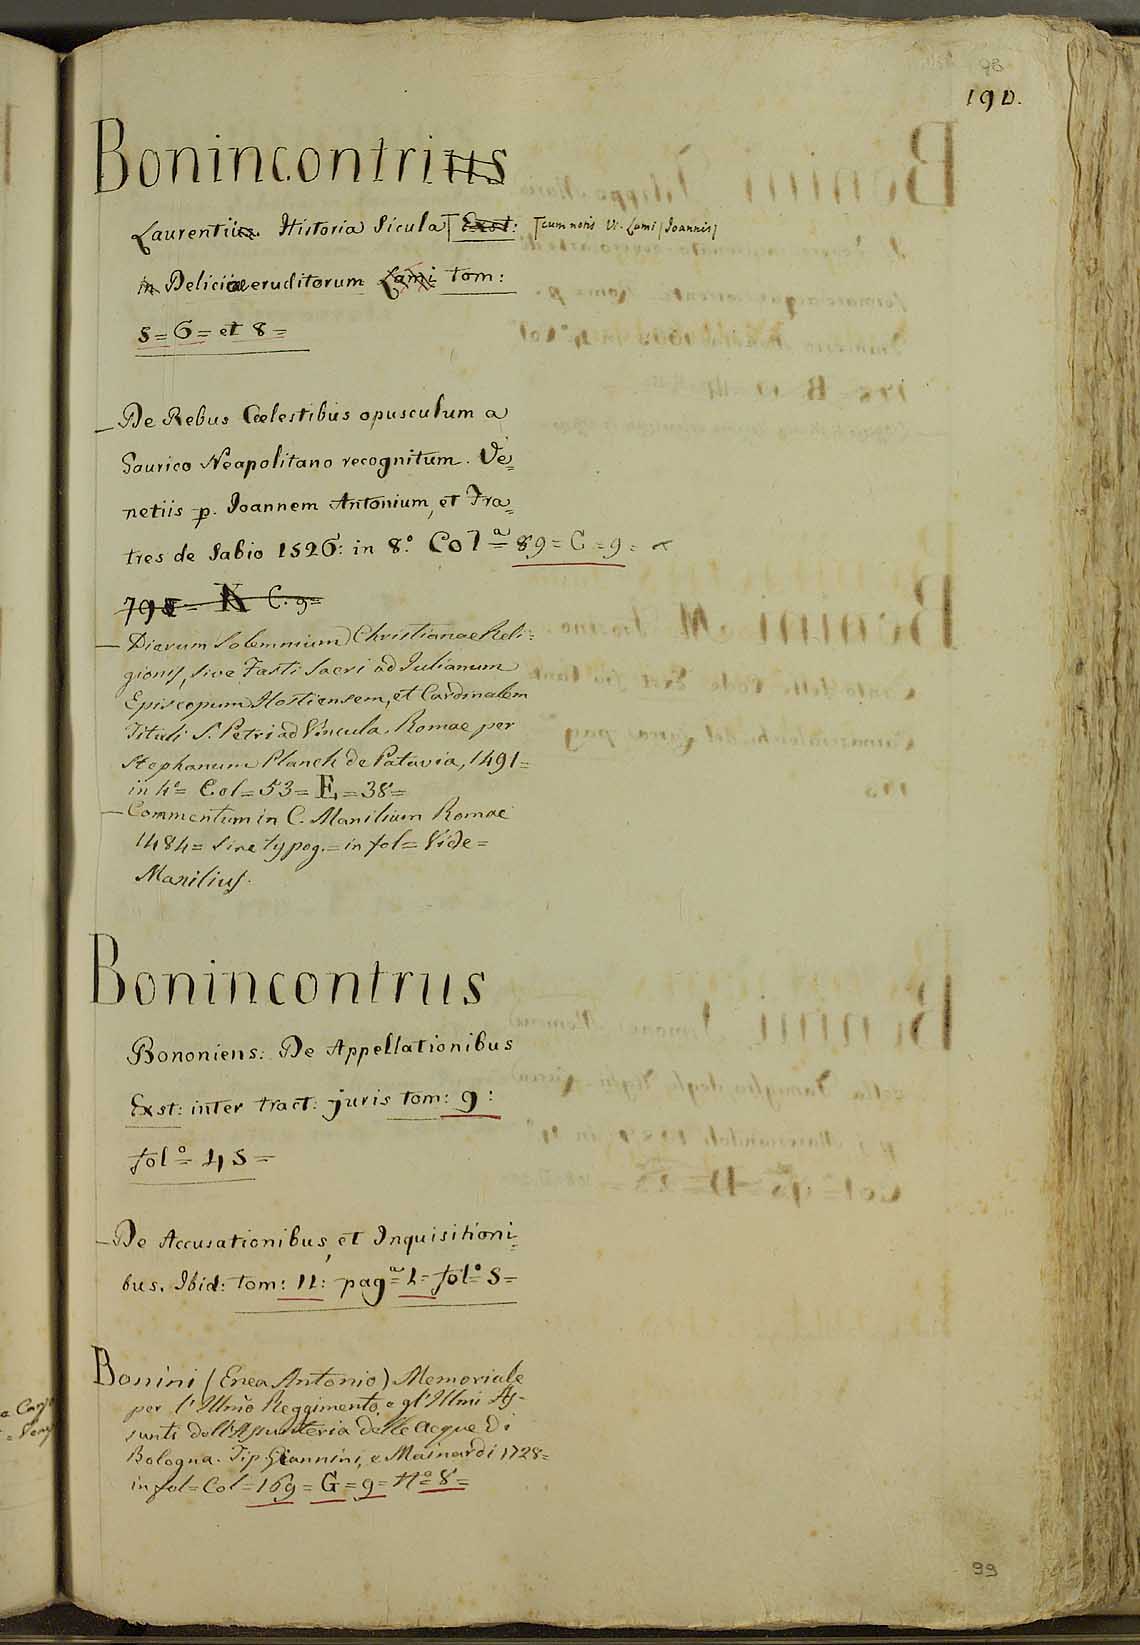 98
190.
Bonincontrius
Laurentii Historia Sicula [Exst: [cum notis Vi. Lami [Joannis]
in Deliciae eruditorum Lami tom:
5=6= et 8=
De Rebus Cœlestibus opusculum a
Gaurico Neapolitano recognitum. Ve=
netiis p. Joannem Antonium, et Fra=
tres de Sabio 1526: in 8.º Col=ª 89= G =9=
795= K C. 9=
Dierum Solemnium Christianae Reli=
gionis, sive Fasti Sacri ad Julianum
Episcopum Hostiensem, et Cardinalem
Tituli S. Petri ad Vincula. Romae per
Stephanum Planck de Patavia, 1491=
in 4º= Col=53=E=38=
Commentum in C. Manilium Romae
1484= sine typog.= in fol= Vide=
Manilius.
Bonincontrus
Bononiens: De Appellationibus
Exst: inter tract: juris tom: 9:
folº= 45=
De Accusationibus, et Inquisitioni=
bus. Ibid: tom: 11: pagª= 1= fol.º 5=
Bonini (Enea Antonio) Memoriale
per l'Illmo Reggimento, e gl'Illmi As-
sunti dell'Assunteria delle Acque di
Bologna. Tip Giannini, e Mainardi 1728=
in fol=Col=169=G=9=Nº=8=
99